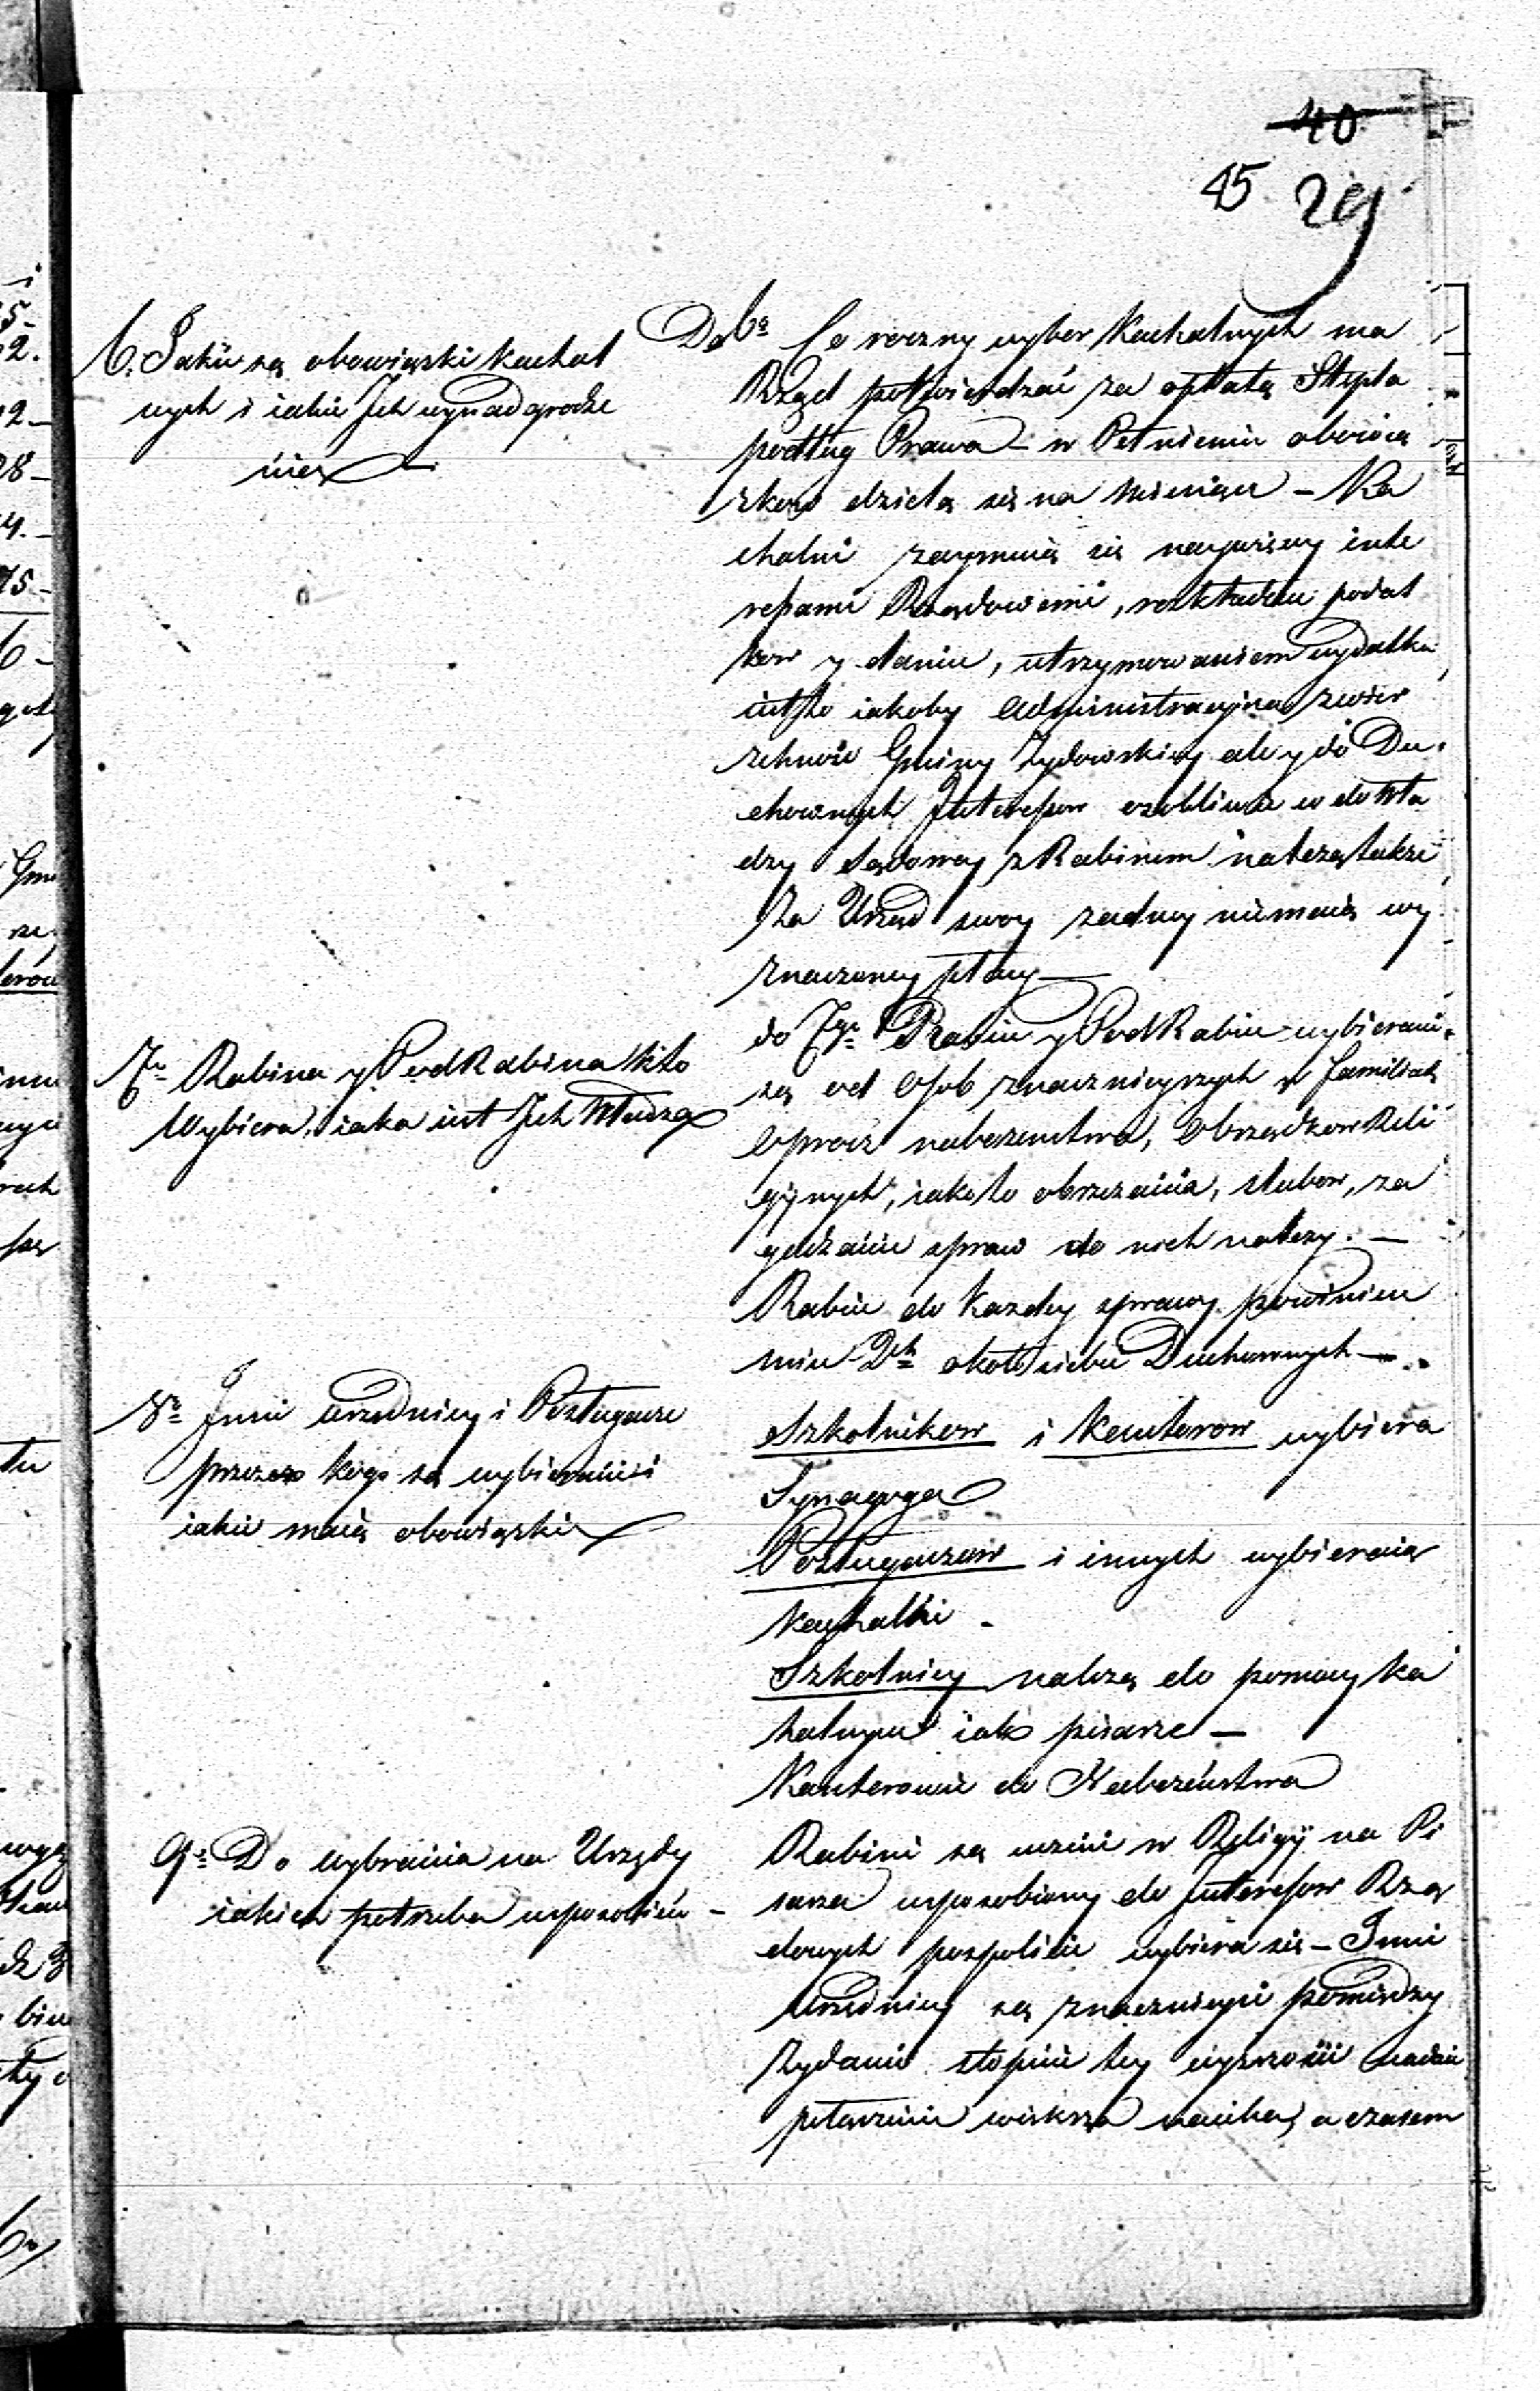 40
45 29
6. Jakie są obowiązki kachal
nych i iakie Jch wynadgrodze
nie
Do 6o Co roczny wybor Kachalnych ma
Rząd potwierdzać za opłatą Stępla
podług Prawa – w Pełnieniu obowią
zkow dzielą się na Miesiące – Ka
chalni zaymuią się naywięcey inte
resami Rządowemi, rozkładem podat
kow y daniu, utrzymowaniem wydatku
iest to iakoby Administracyjna zwier
zchność Gminy Żydowskiey ale y do Du
chownych Jnteresow osobliwie co do Wła
dzy Sądowey z Rabinem należą także
Za Urząd swoy zadney niemaią wy
znaczoney płacy
7o Rabina y PodRabina kto
Wybiera, iaka iest Jch Władza
do 7go Rabin y PodRabin wybierani
są od Osob znacznieyszych w familiach
Oprocz nabozenstwa, Obrządkow Reli
gijnych, iako to obrzezania, slubow, za
godzenie spraw do nich nalezy. –
Rabin do kazdey sprawy powinien
miec 2ch około siebie Duchownych –
8o Jnni urzędnicy i Posługacze
przez kogo są wybierani i
iakie maią obowiązki
Szkolnikow i Kantorow wybiera
Synagoga
Posługaczow i innych wybieraią
Kachalni –
Szkolnicy nalezą do pomocy ka
halnym iak pisarze –
Kantorowie do Nabożeństwa
9o Do wybrania na Urzędy
iakich potrzeba usposobień –
Rabini są uczeni w Religij na Pi
sarza usposobiony do Jnteresow Rzą
dowych pospolicie wybiera się – Jnni
Urzędnicy są znacznieysi pomiędzy
Żydami stopnie tey wyzszości nadaie
połączenie większa nauka, a czasem